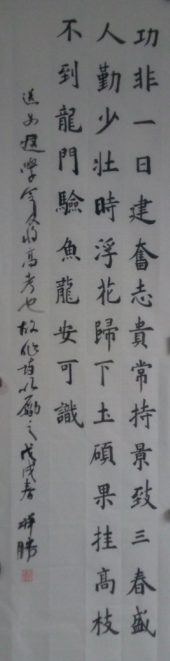 功非一日建奮志貴常持景致三春盛
人勤少壯時浮花歸下土碩果挂高枝
不到龍門驗魚龍安可識
送女遊學今又將高考也故作詩以勵之戊戌春